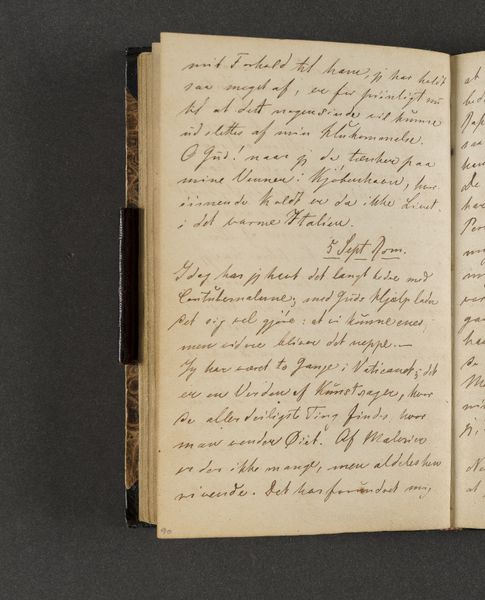 mit Forhold til ham, jeg har holdt
saa meget af, er for piinligt nu
til at dett nogensinde vil kunne
udslettes af min Hukommelse.
O Gud! naar jeg da tænker paa
mine Venner i Kjøbenhavn, hvor
iisnende koldt er da ikke Livet
i det varme Italien.
5 Sept Rom.
I dag har jeg havt det langt bedre med
med Guds Hjælp lader
det sig vel gjøre: at vi kunne enes,
men videre bliver det neppe.—
Jeg har været to Gange i Vaticanet; det
er en Verden af Kunstsager, hvor
de allerdeiligste Ting findes hvor
man vender Øiet. Af Malerier
er der ikke mange, men aldeles hen
rivende. Det har forundret mig,
90
at
saa
De